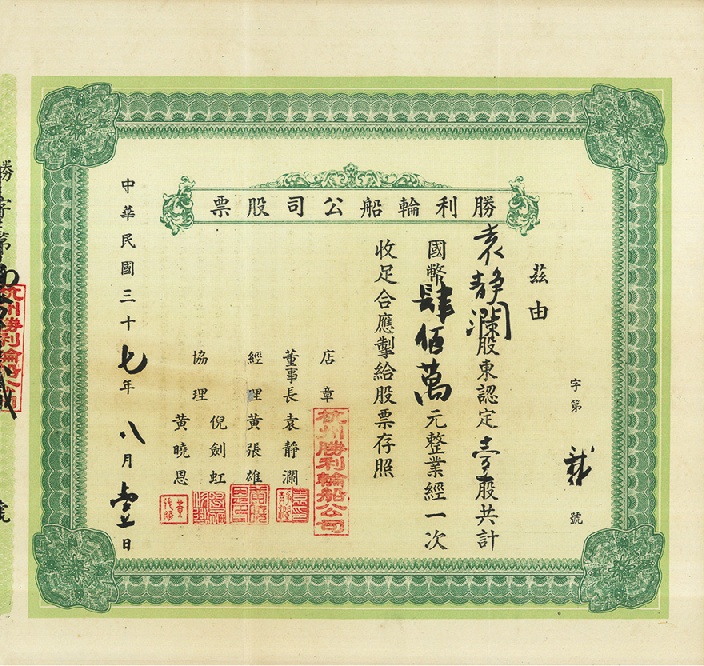 勝利輪船公司股票
茲由
袁靜瀾股東認定壹股共計
國幣肆佰萬元整業經一次
收足合應掣給股票存照
字第 號
店章
杭州勝利輪船公司
董事長袁靜瀾
經理黃張雄
協理倪劍虹
黃曉恩
中華民國三十七年八月壹日
勝字第
杭州勝利輪船公司
號